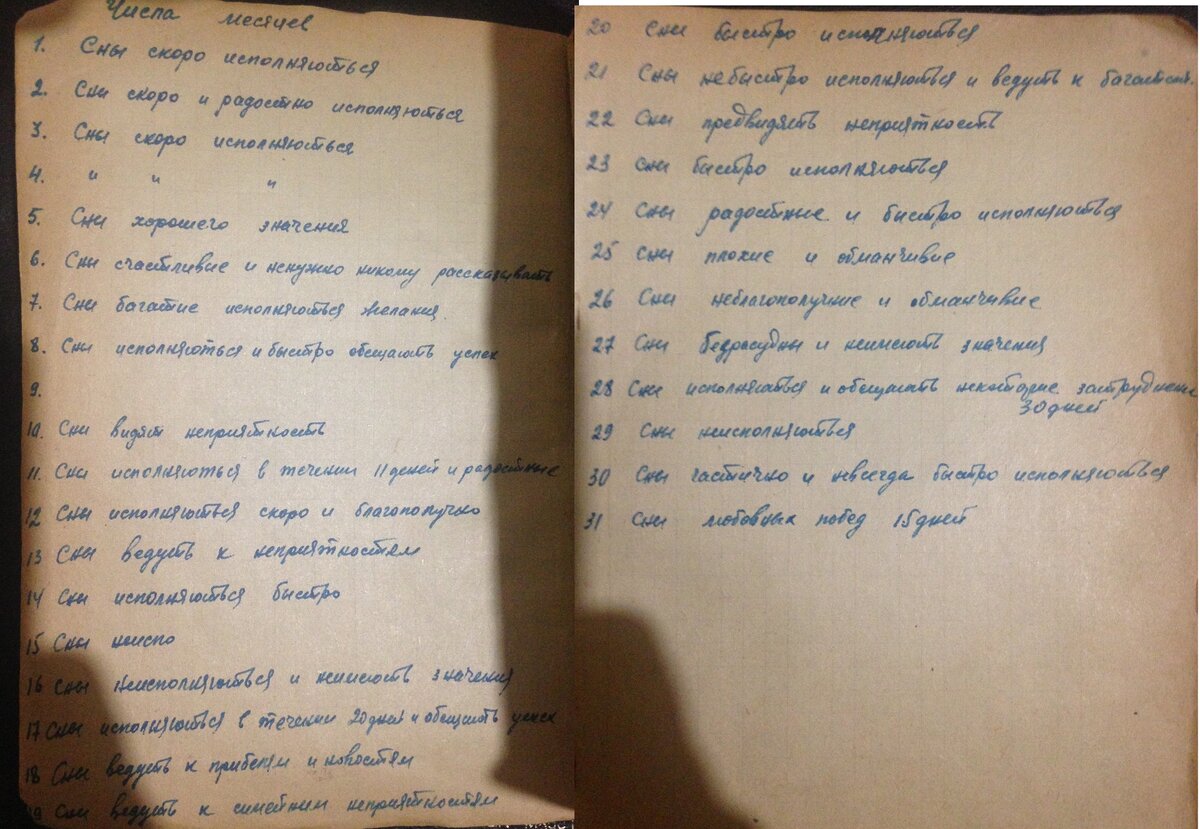 Числа месяцев
1. Сны скоро исполняються
2. Сны скоро и радостно исполняються
3. Сны скоро исполняються
4. " " "
5. Сны хорошего значения
6. Сны счастливые и ненужно никому рассказывать
7. Сны багатие исполняються желания.
8. Сны исполняються и быстро обещають успех
9.
10. Сни видят неприятность
11. Сни исполняються в течении 11 дней и радостные
12 Сны исполняються скоро и благополучно
13 Сны ведуть к неприятностям
14 Сны исполняються быстро
15 Сны неиспо
16 Сны неисполняються и неимеють значения
17 Сны исполняються в течении 20 дней и обещають успех
18 Сны ведуть к прибелям и новостям
19 Сни ведуть к симейним неприятностям
20 Сни быстро исполняються
21 Сны небыстро исполняються и ведуть к багатст.
22 Сны предвидять неприятность
23 Сны быстро исполняються
24 Сны радостные и быстро исполняються
25 Сны плохие и обманчивие
26 Сны неблагополучние и обманчывие
27 Сны бедрасудны и неимеють значения
28 Сни исполняються и обещають некоторие затруднен
30 дней
29 Сны неисполняються
30 Сны частично и невсегда быстро исполняються
31 Сны любовных побед 15 дней